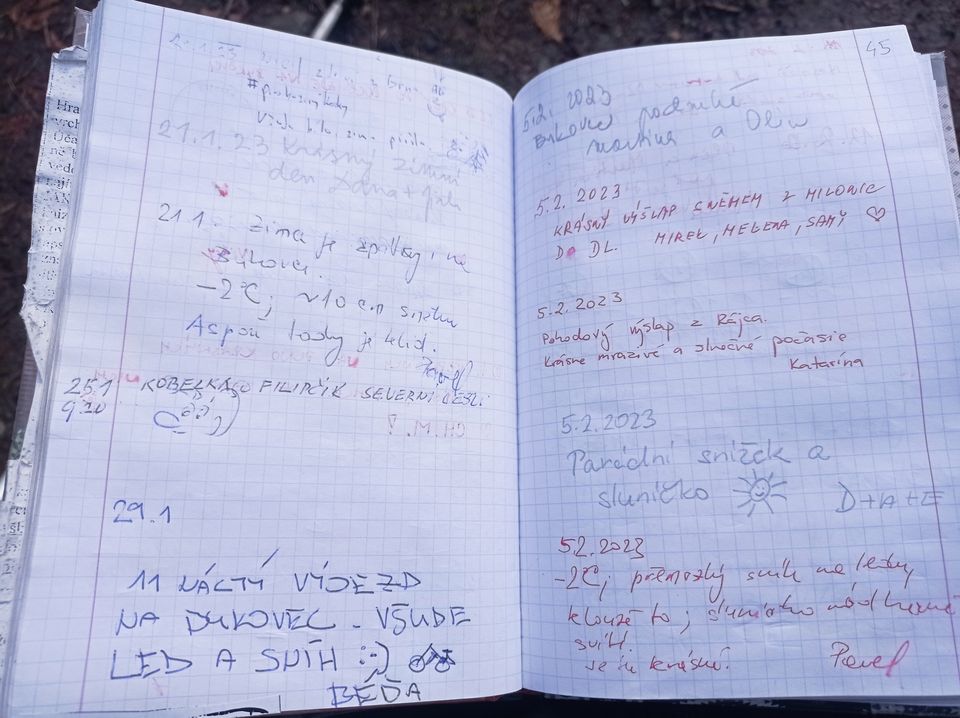 #
21.1.23 Krásný zimní
den
21.1. zima je zpátky i na
Bukovci.
-2°C, ~10 cm sněhu
Aspoň tady je klid.
Pavel
25.1 KOBELKA FILIPČÍK SEVERNÍ
9:20
29.1
11 NÁCTÝ VÝJEZD
NA BUKOVEC. VŠUDE
LED A SNÍH :-)
BÉĎA
45
5.2. 2023
Bukovec podruhé
Martina a
5.2. 2023
KRÁSNÝ VÝŠLAP S NĚMEM Z MILONIC
DO DL. MIREK, HELENA, SAMÍ
5.2.2023
Pohodový výšlap z Rájca.
Krásne mrazivé a slnečné počasie
Katarína
5.2.2023
Parádní snížek a
sluníčko D+A+E
5.2.2023
-2°C, přemrzlý sníh na ledu,
klouže to; sluníčko nádherně
svítí.
Je tu krásně. Pavel